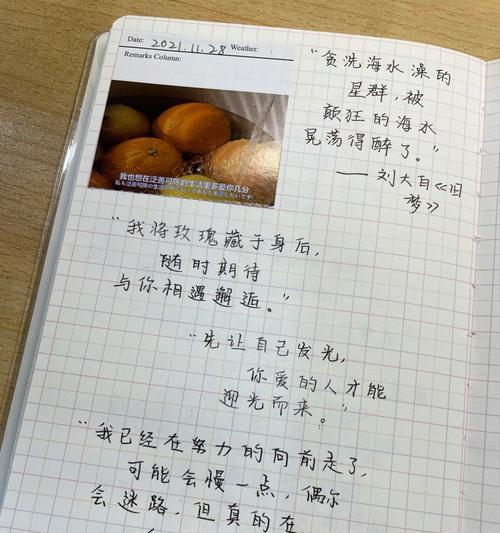 Date: 2021.11.28 Weather:
Remarks Column:
我也想在泛善可陈的生活里多爱你几分
"贪洗海水澡的
星群，被
颠狂的海水
晃荡得醉了。"
——刘大白《旧
梦》
"我将玫瑰藏于身后，
随时期待
与你相遇邂逅。"
"先让自己发光，
你爱的人才能
迎光而来。"
"我已经在努力的向前走了，
可能会慢一点，偶尔
会迷路，但真的在